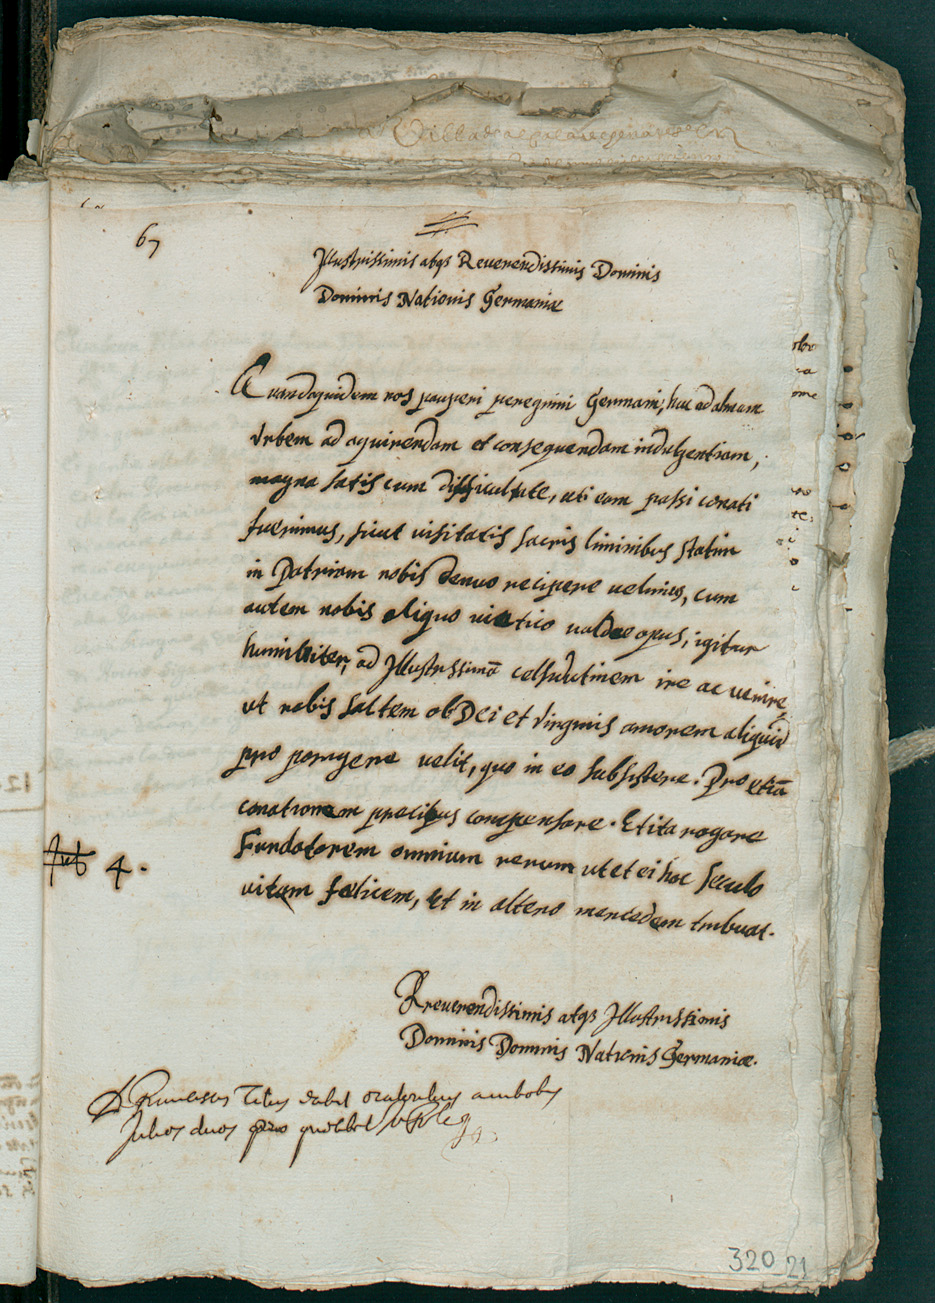 67
Illustrissimis atqs Reuerendissimis Dominis
Dominis Nationis Germaniæ
Quandoquidem nos pauperi peregrini Germani, huc ad almam
Vrbem ad aquirendam et consequendam indulgentiam,
magna satis cum difficultate, uti eam passi conati
fuerimus, sicut visitatis sacris liminibus statim
in Patriam nobis denuo recipere velimus, cum
autem nobis aliquo viatico valde opus, igitur
humibiter, ad Illustrissimā celsitudinem ire ac venire
vt nobis saltem ob Dei et Virginis amorem aliquid
pro porrigere velit, quo in eo subsistere. Pro etiā
conationem precibus compensare. Et ita rogare
Fundatorem omnium rerum ut et ei hoc seculo
vitam fælicem, Et in altero mercedem tribuat.
Jul 4.
Rreuerendissimis atqs Illustrissimis
Dominis Dominis Nationis Germaniæ.
D. Franciscus Titus dabit oratoribus ambobus
Julios duos pro quolibet
320
21